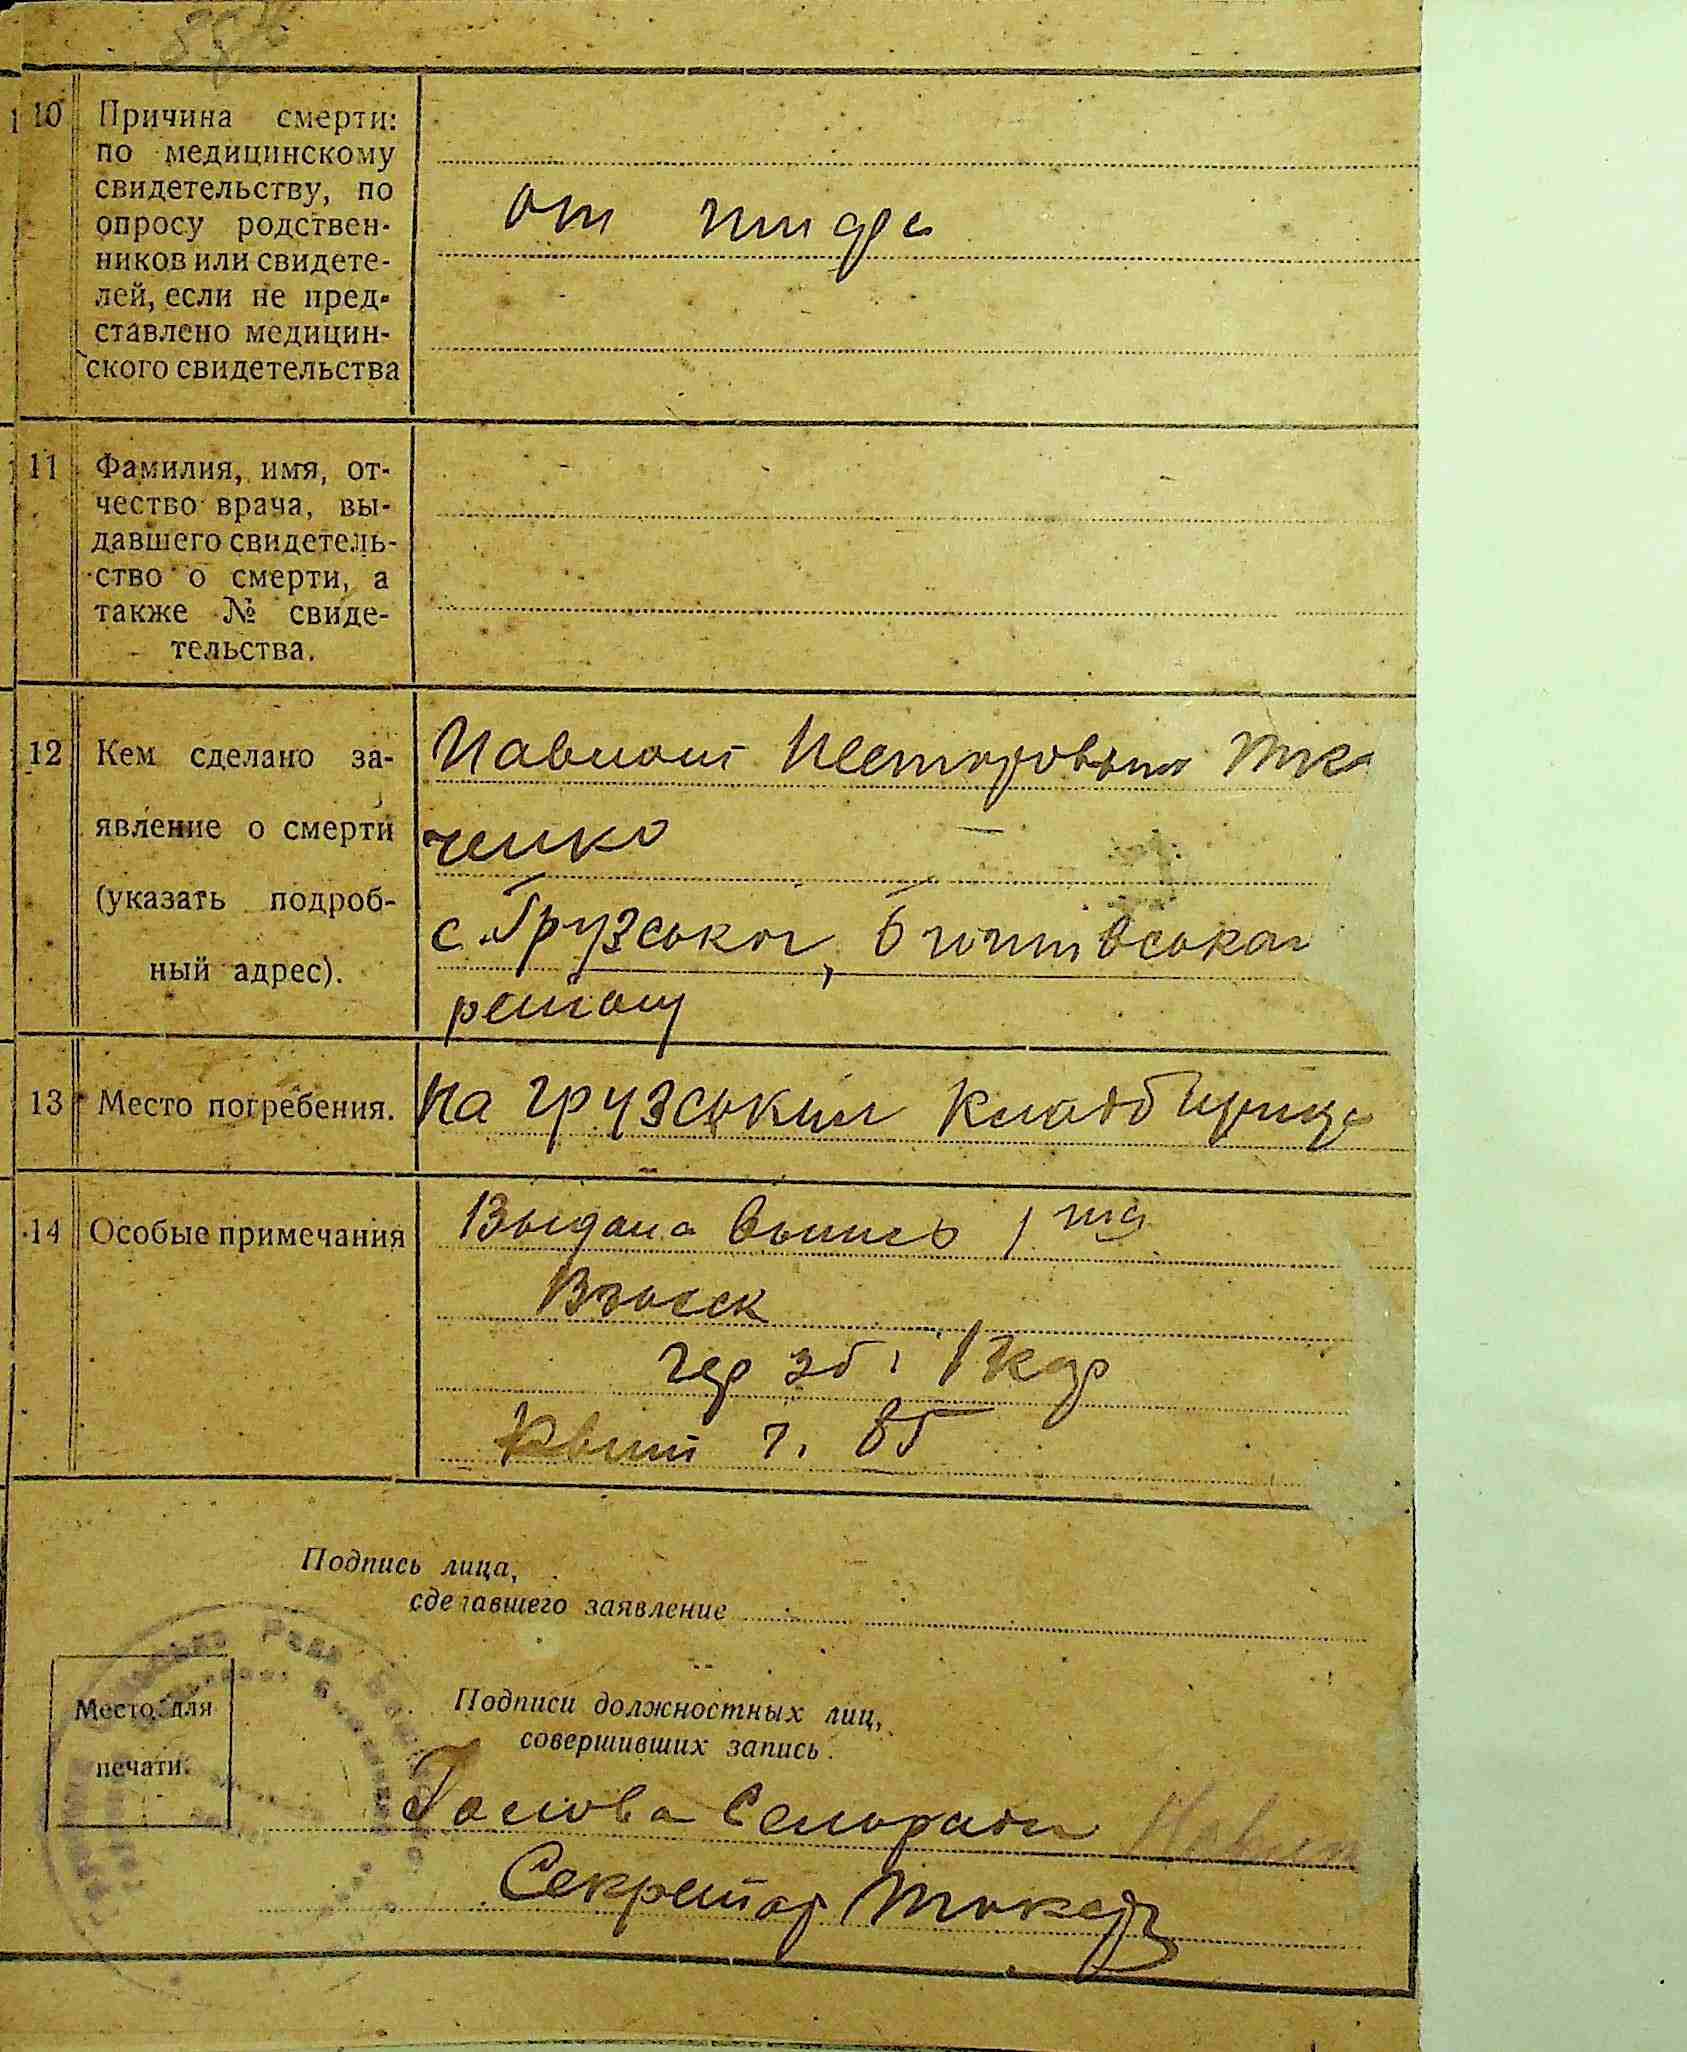 10 Причина смерти:
по медицинскому
свидетельству, по
опросу родствен-
ников или свидете-
лей, если не пред-
ставлено медицин-
ского свидетельства
от тифа
11 Фамилия, имя, от-
чество врача, вы-
давшего свидетель-
ство о смерти, а
также № свиде-
тельства.
12 Кем сделано за-
явление о смерти
(указать подроб-
ный адрес).
Несторовым Тка
ченко
с. Грузськой,
району
13 Место погребения.
на грузським кладбищу
14 Особые примечания
Выдана выпись 1
Подпись лица,
сделавшего заявление
Место для
печати.
Подписи должностных лиц,
совершивших запись.
Голова Сельради
Секретар